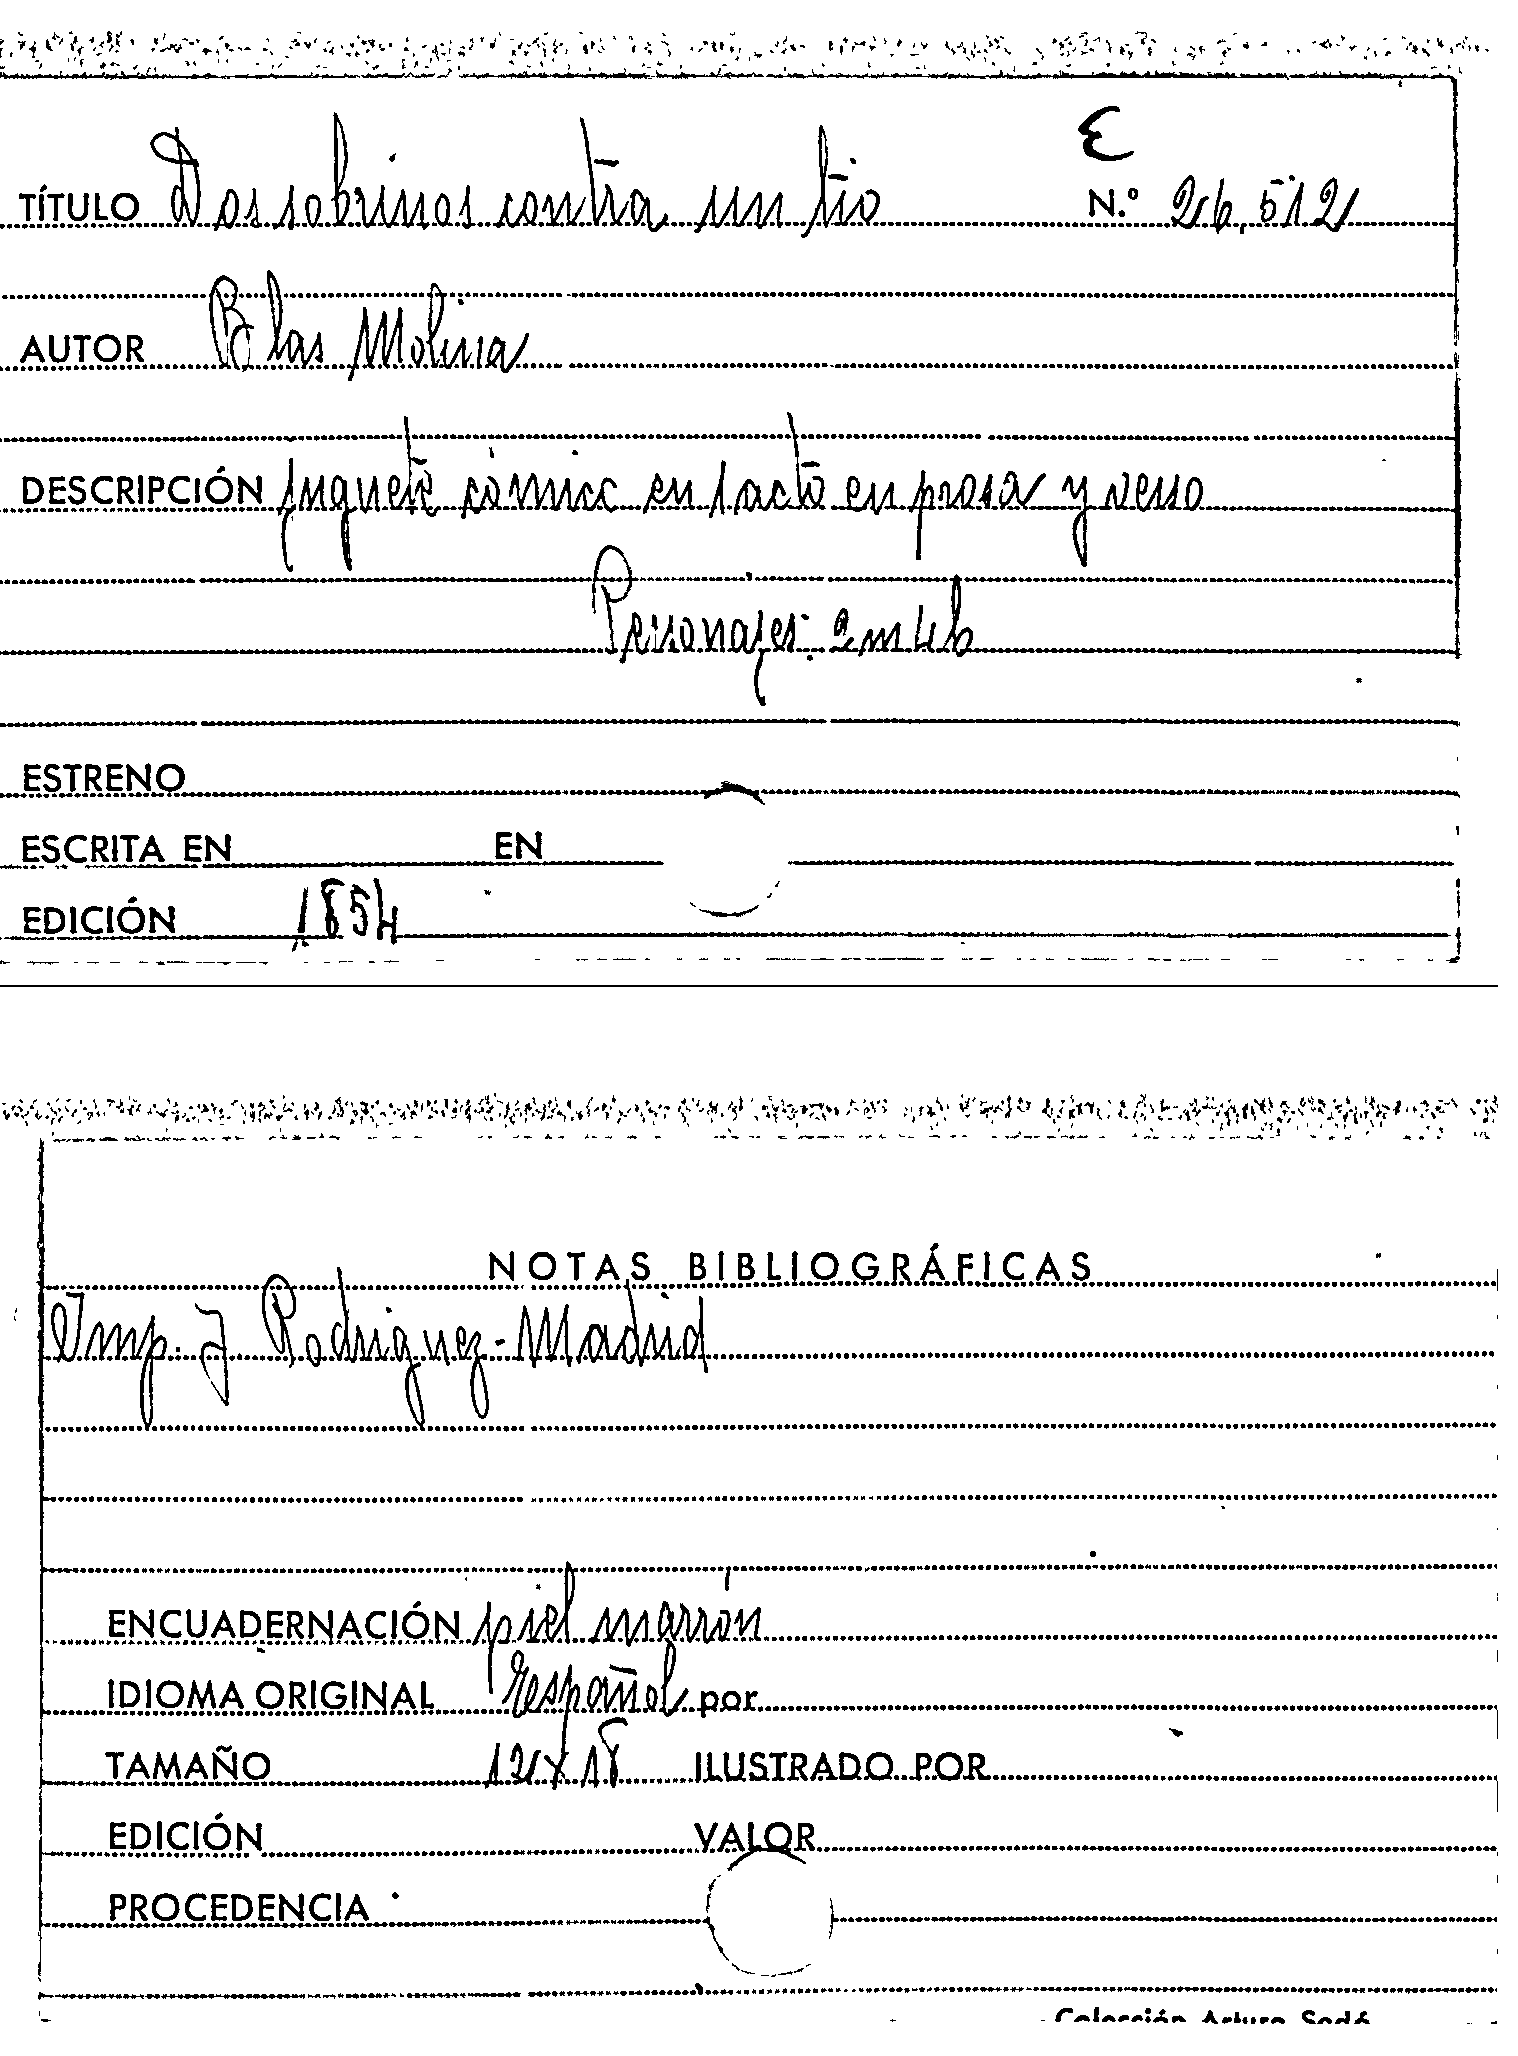 E
TÍTULO Dos sobrinos contra un tio N.º 26,512
AUTOR Blas Molina
DESCRIPCIÓN juguete cómico en 1 acto en prosa y verso
Personajes: 2m 4h
ESTRENO
ESCRITA EN EN
EDICIÓN 1854
NOTAS BIBLIOGRÁFICAS
Imp. J Rodriguez - Madrid
ENCUADERNACIÓN piel marrón
IDIOMA ORIGINAL Español por
TAMAÑO 12 x 18 ILUSTRADO POR
EDICIÓN VALOR
PROCEDENCIA
Colección Arturo Sedó